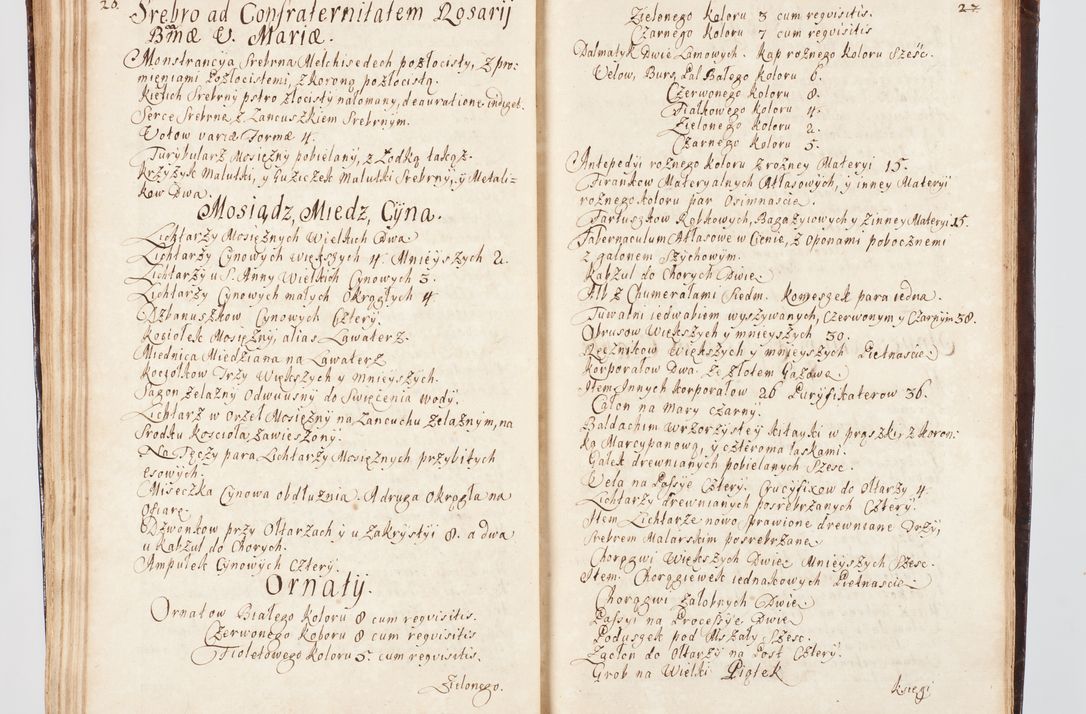 26.
Srebro ad Confraternitatem Rosarij
B̃mæ V. Mariæ.
Monstrancyia Srebrna Melchisedech pozłocisty, z pro-
mieniami Pozłocistemi, z koroną pozłocistą.
Kielich Srebrny pstro złocisty nałomany, deauratione indiget.
Serce Srebrne z Łancuszkiem Srebrnym.
Votow variæ Formæ 4.
Turybularz Mosiężny pobielany, z Łodką takąż.
Krzyżyk Malutki, y Guziczek Malutki Srebrny, y Metali-
kow Dwa.
Mosiądz, Miedz, Cyna.
Lichtarzy Mosiężnych Wielkich Dwa
Lichtarzy Cynowych większych 4. Mnieyszych 2.
Lichtarzy u S. Anny Wielkich Cynowych 3.
Lichtarzy Cynowych małych Okrągłych 4.
Dzbanuszkow Cynowych Cztery.
Kociołek Mosiężny, alias Lawaterz.
Miednica Miedziana na Lawaterz
Kociołkow Trzy Większych y Mnieyszych.
Sagan żelazny Odwuusny do Swięcenia wody.
Lichtarz w Orzeł Mosiężny na Łancuchu żelaznym, na
Srodku Koscioła, zawieszony.
Na Tęczy para Lichtarzy Mosiężnych przybitych
esowych.
Miseczka Cynowa obdłużnia. A druga Okrągła na
Ofiarę
Dzwonkow przy Oltarzach y u Zakrystyi 8. a dwa
u Kabzul do Chorych.
Ampułek Cynowych Cztery.
Ornaty.
Ornatow Białego Koloru 8 cum reqvisitis.
Czerwonego Koloru 8 cum reqvisitis
Fioletowego Koloru 5. cum reqvisitis.
Zielonego.
27.
Zielonego Koloru 3 cum reqvisitis.
Czarnego Koloru 7 cum reqvisitis
Dalmatyk Dwie Lamowych. Kap rożnego Koloru Szesć.
Velow, Burs, Pal Białego Koloru 6.
Czerwonego Koloru 8.
Fiałkowego Koloru 4.
Zielonego Koloru 2.
Czarnego Koloru 5.
Antepedyi rożnego koloru z rożney Materyi 15.
Firankow Materyalnych Atłasowych, y inney Materyi
rożnego koloru par Osimnascie.
Fartuszkow Rąbkowych, Bagażyiowych y z inney Materyi 15.
Tabernaculum Atłasowe w Cienie, z Oponami pobocznemi
z galonem Szychowym.
Kabzul do Chorych Dwie.
Alb z Chumerałami Siedm. Komeszek para iedna.
Tuwalni iedwabiem wyszywanych, Czerwonym y Czarnym 38.
Obrusow Większych y mnieyszych 30.
Ręcznikow Większych y mnieyszych Piętnascie.
Korporałow Dwa. ze złotem Gazowe
Item Innych Korporałow 26 Puryfikaterow 36.
Całon na Mary czarny.
Baldachim wzorzystey kitayki w prążki, z koron-
ką Marcypanową, y czteroma laskami.
Gałek drewnianych pobielanych Szesc.
Vela na Passye Cztery. Crucyfixow do Ołtarzy 4.
Lichtarzy drewnianych posrebrzanych Cztery.
Item Lichtarze nowo Sprawione drewniane Trzy,
Srebrem Malarskim posrebrzane
Chorągwi Większych Dwie. Mnieyszych Szesc.
Item. Chorągziewek iednakowych Piętnascie.
Chorągwi załobnych Dwie.
Passyi na Processye Dwie
Poduszek pod Mszały Szesc.
Zasłon do Ołtarzy na Post Cztery.
Grob na Wielki Piątek
księgi